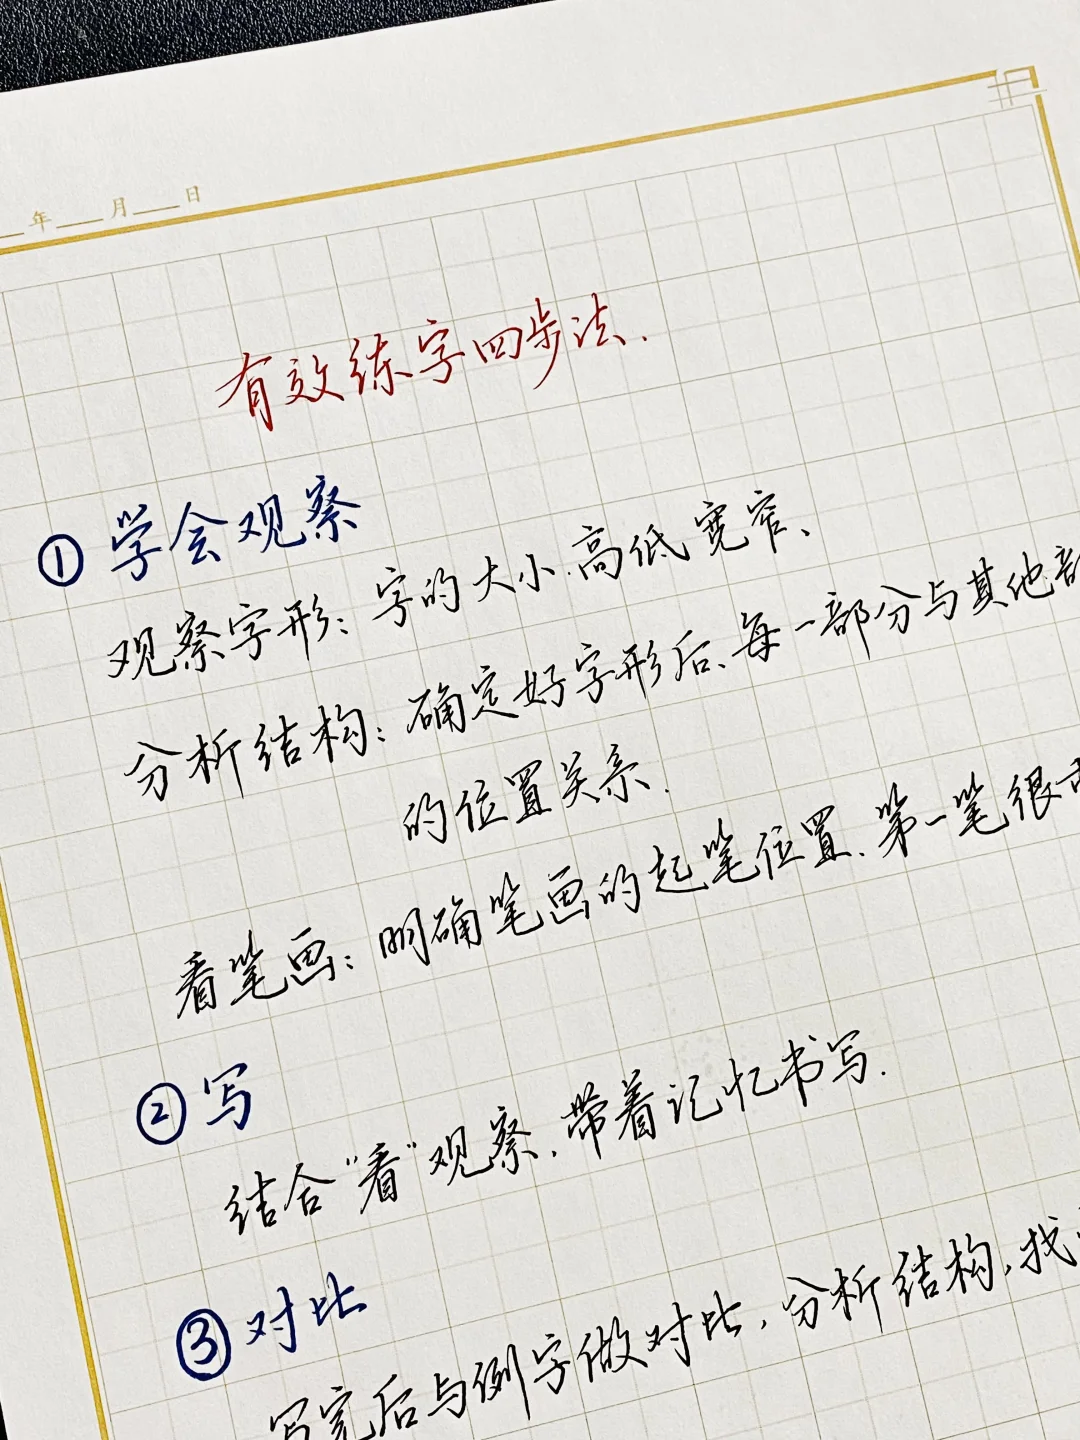 年 月 日
有效练字四步法.
① 学会观察
观察字形：字的大小.高低宽窄、
分析结构：确定好字形后、每一部分与其他部
的位置关系.
看笔画：明确笔画的起笔位置.第一笔很
② 写
结合“看”观察.带着记忆书写.
③ 对比
写完后与例字做对比，分析结构，找